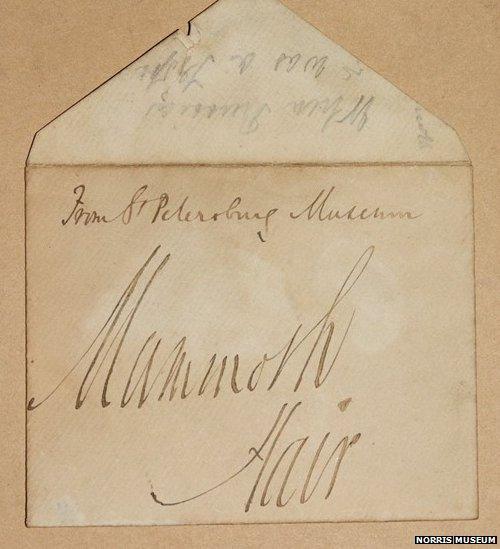 From St Petersburg Museum
Mammoth
Hair
was a
When
NORRIS MUSEUM